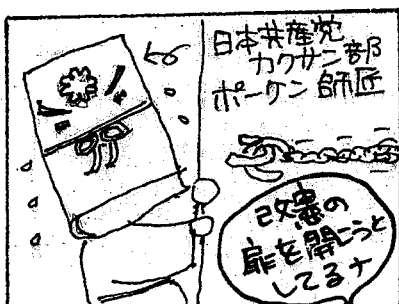 日本共産党
カクサン部
ポーケン師匠
改憲の
扉を開こうと
してるナ